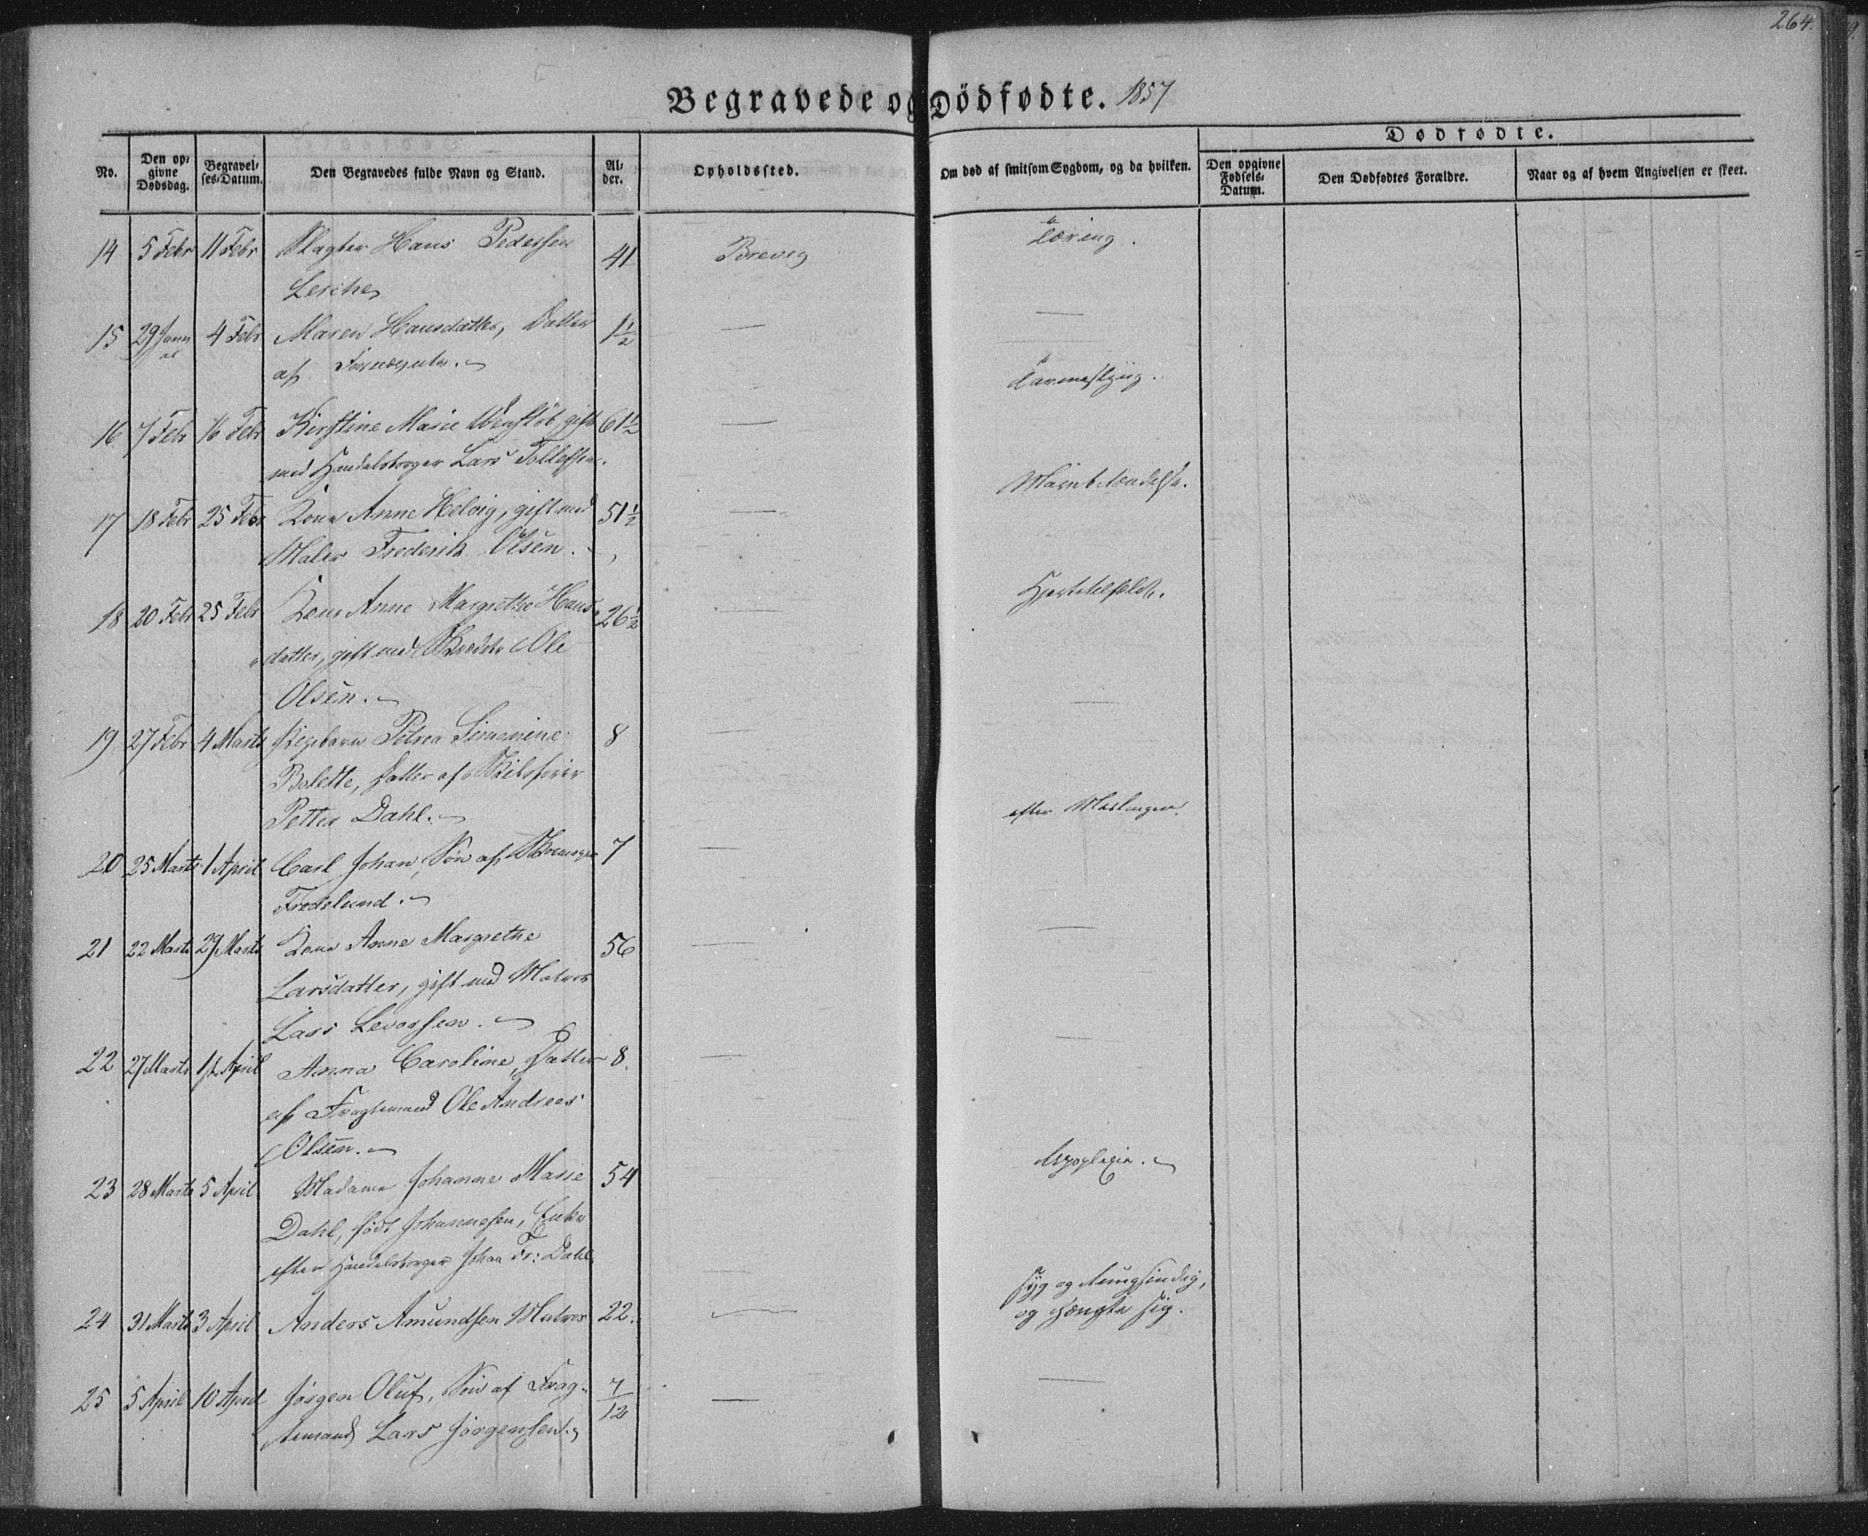 264.
Begravede og Dödfødte. 1857
Dødfødte.
No.
Den op-
givne
Dødsdag.
Begravel-
ses-Datum.
Den Begravedes fulde Navn og Stand.
Al-
der.
Opholdssted.
Om død af smitsom Sygdom, og da hvilken.
Den opgivne
Fødsels-
Datum.
Den Dødfødtes Forældre.
Naar og af hvem Angivelsen er skeet.
14 5 Febr 11 Febr Slagter Hans Pedersen 41 Brevig Tæring.
Lerche
15 29 Janu 4 Febr Maren Hansdatter, Datter 1½ —
af
16 7 Febr 16 Febr Kirstine Marie gift 61½ —
med Handelsborger Lars Tollefsen.
17 18 Febr 25 Febr Kone Anne Helvig, gift med 51½ —
Maler Frederik Olsen.
18 20 Febr 25 Febr Kone Anne Margrethe Hans- 26½ —
datter, gift med Ole
Olsen.
19 27 Febr 4 Marts Pigebarn Petrea Simonine 8 —
Bolette, Datter af Skibsfører
Petter Dahl.
efter Meslingen.
20 25 Marts 1 April Carl Johan, Søn af 7 —
Fredelund.
21 22 Marts 29 Marts Kone Anne Margrethe 56 —
Larsdatter, gift med Matros
Lars Levorsen.
22 27 Marts 1 April Anna Caroline, Datter 8. —
af Fragtemand Ole Andreas
Olsen.
23 28 Marts 5 April Madame Johanne Marie 54 Apoplexia.
Dahl, født Johannesen, Enke
efter Handelsborger Johan Fr: Dahl
24 31 Marts 3 April Anders Amundsen Matros 22. — Syg og tungsindig,
og hængte sig.
25 5 April 10 April Jørgen Oluf, Søn af Frag- 7/12 —
temand Lars Jørgensen.